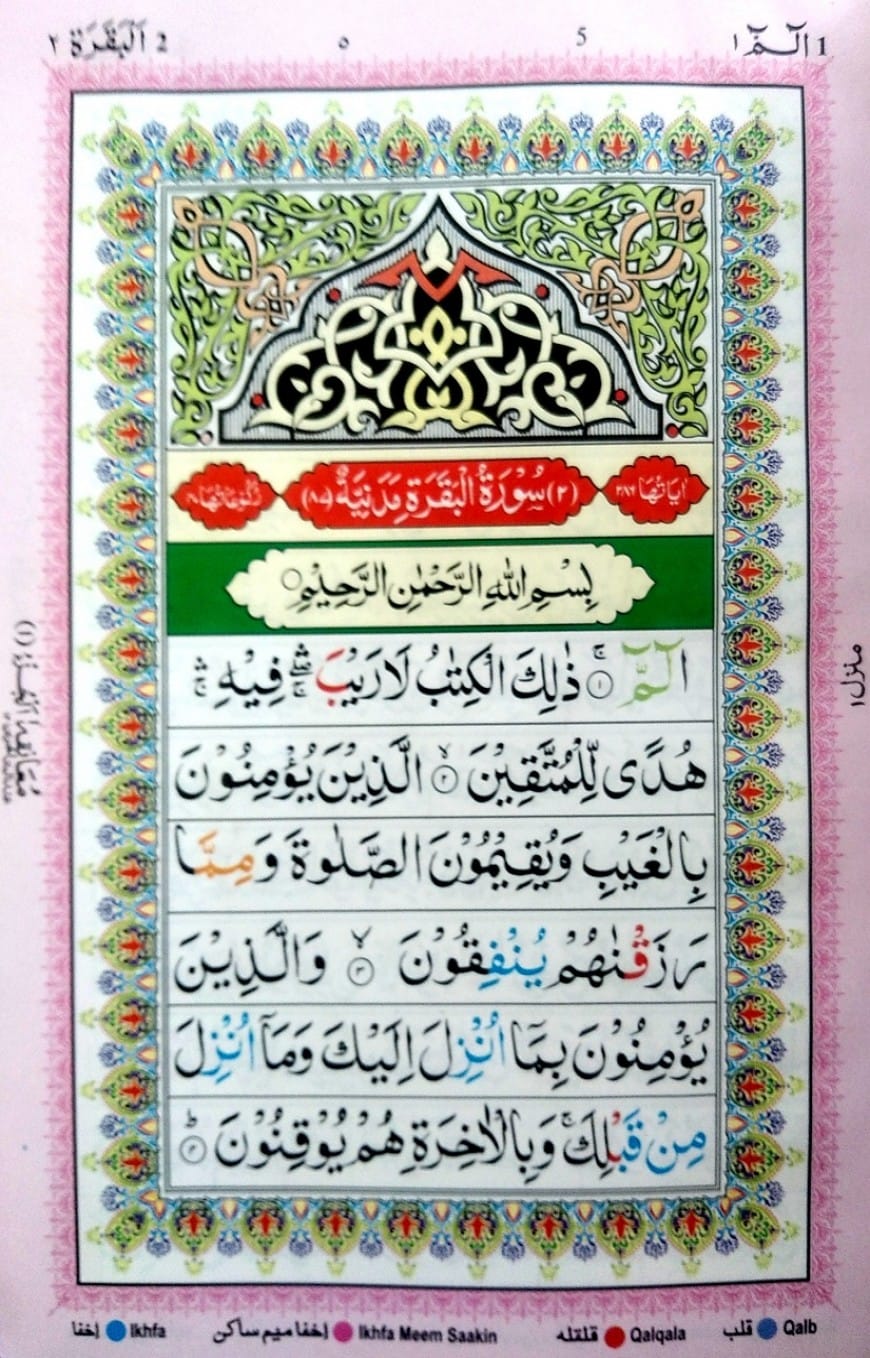 1 الٓمّٓ ١
5
٥
2 اَلْبَقَرَة ٢
اٰيَاتُهَا ٢٨٦
(٢) سُوْرَةُ الْبَقَرَةِ مَدَنِيَّةٌ (٨٧)
رُكُوْعَاتُهَا ٤٠
بِسْمِ اللهِ الرَّحْمٰنِ الرَّحِيْمِ ○
الٓمّٓ ۚ ﴿١﴾ ذٰلِكَ الْكِتٰبُ لَا رَيْبَ ۛۖۚ فِيْهِ ۛۚ
هُدًى لِّلْمُتَّقِيْنَ ۙ ﴿٢﴾ الَّذِيْنَ يُؤْمِنُوْنَ
بِالْغَيْبِ وَيُقِيْمُوْنَ الصَّلٰوةَ وَمِمَّا
رَزَقْنٰهُمْ يُنْفِقُوْنَ ۙ ﴿٣﴾ وَالَّذِيْنَ
يُؤْمِنُوْنَ بِمَآ اُنْزِلَ اِلَيْكَ وَمَآ اُنْزِلَ
مِنْ قَبْلِكَ ۚ وَبِالْاٰخِرَةِ هُمْ يُوْقِنُوْنَ ؕ ﴿٤﴾
منزل ١
Qalb قلب
Qalqala قلقله
Ikhfa Meem Saakin إخفا ميم ساكن
Ikhfa إخفا